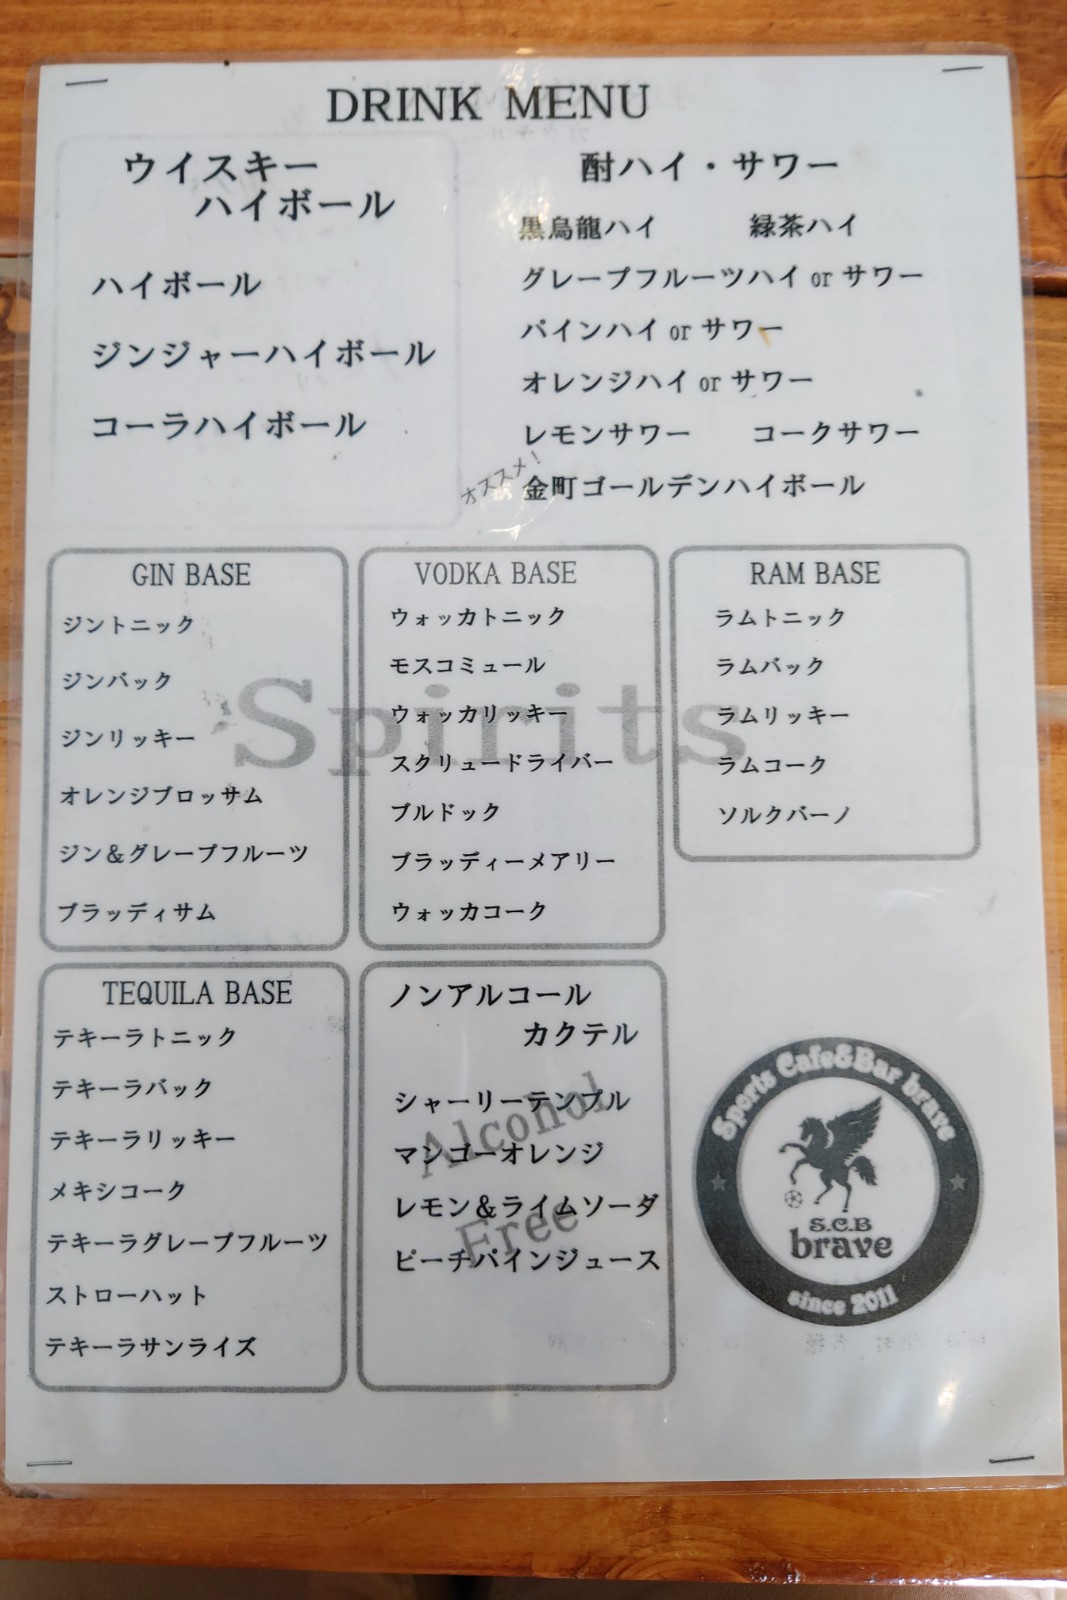 DRINK MENU
ウイスキー
ハイボール
ハイボール
ジンジャーハイボール
コーラハイボール
酎ハイ・サワー
黒烏龍ハイ 緑茶ハイ
グレープフルーツハイ or サワー
パインハイ or サワー
オレンジハイ or サワー
レモンサワー コークサワー
オススメ!
金町ゴールデンハイボール
Spirits
GIN BASE
ジントニック
ジンバック
ジンリッキー
オレンジブロッサム
ジン&グレープフルーツ
ブラッディサム
VODKA BASE
ウォッカトニック
モスコミュール
ウォッカリッキー
スクリュードライバー
ブルドック
ブラッディーメアリー
ウォッカコーク
RAM BASE
ラムトニック
ラムバック
ラムリッキー
ラムコーク
ソルクバーノ
TEQUILA BASE
テキーラトニック
テキーラバック
テキーラリッキー
メキシコーク
テキーラグレープフルーツ
ストローハット
テキーラサンライズ
ノンアルコール
カクテル
Alcohol
Free
シャーリーテンプル
マンゴーオレンジ
レモン&ライムソーダ
ピーチパインジュース
Sports Cafe&Bar brave
S.C.B
brave
since 2011